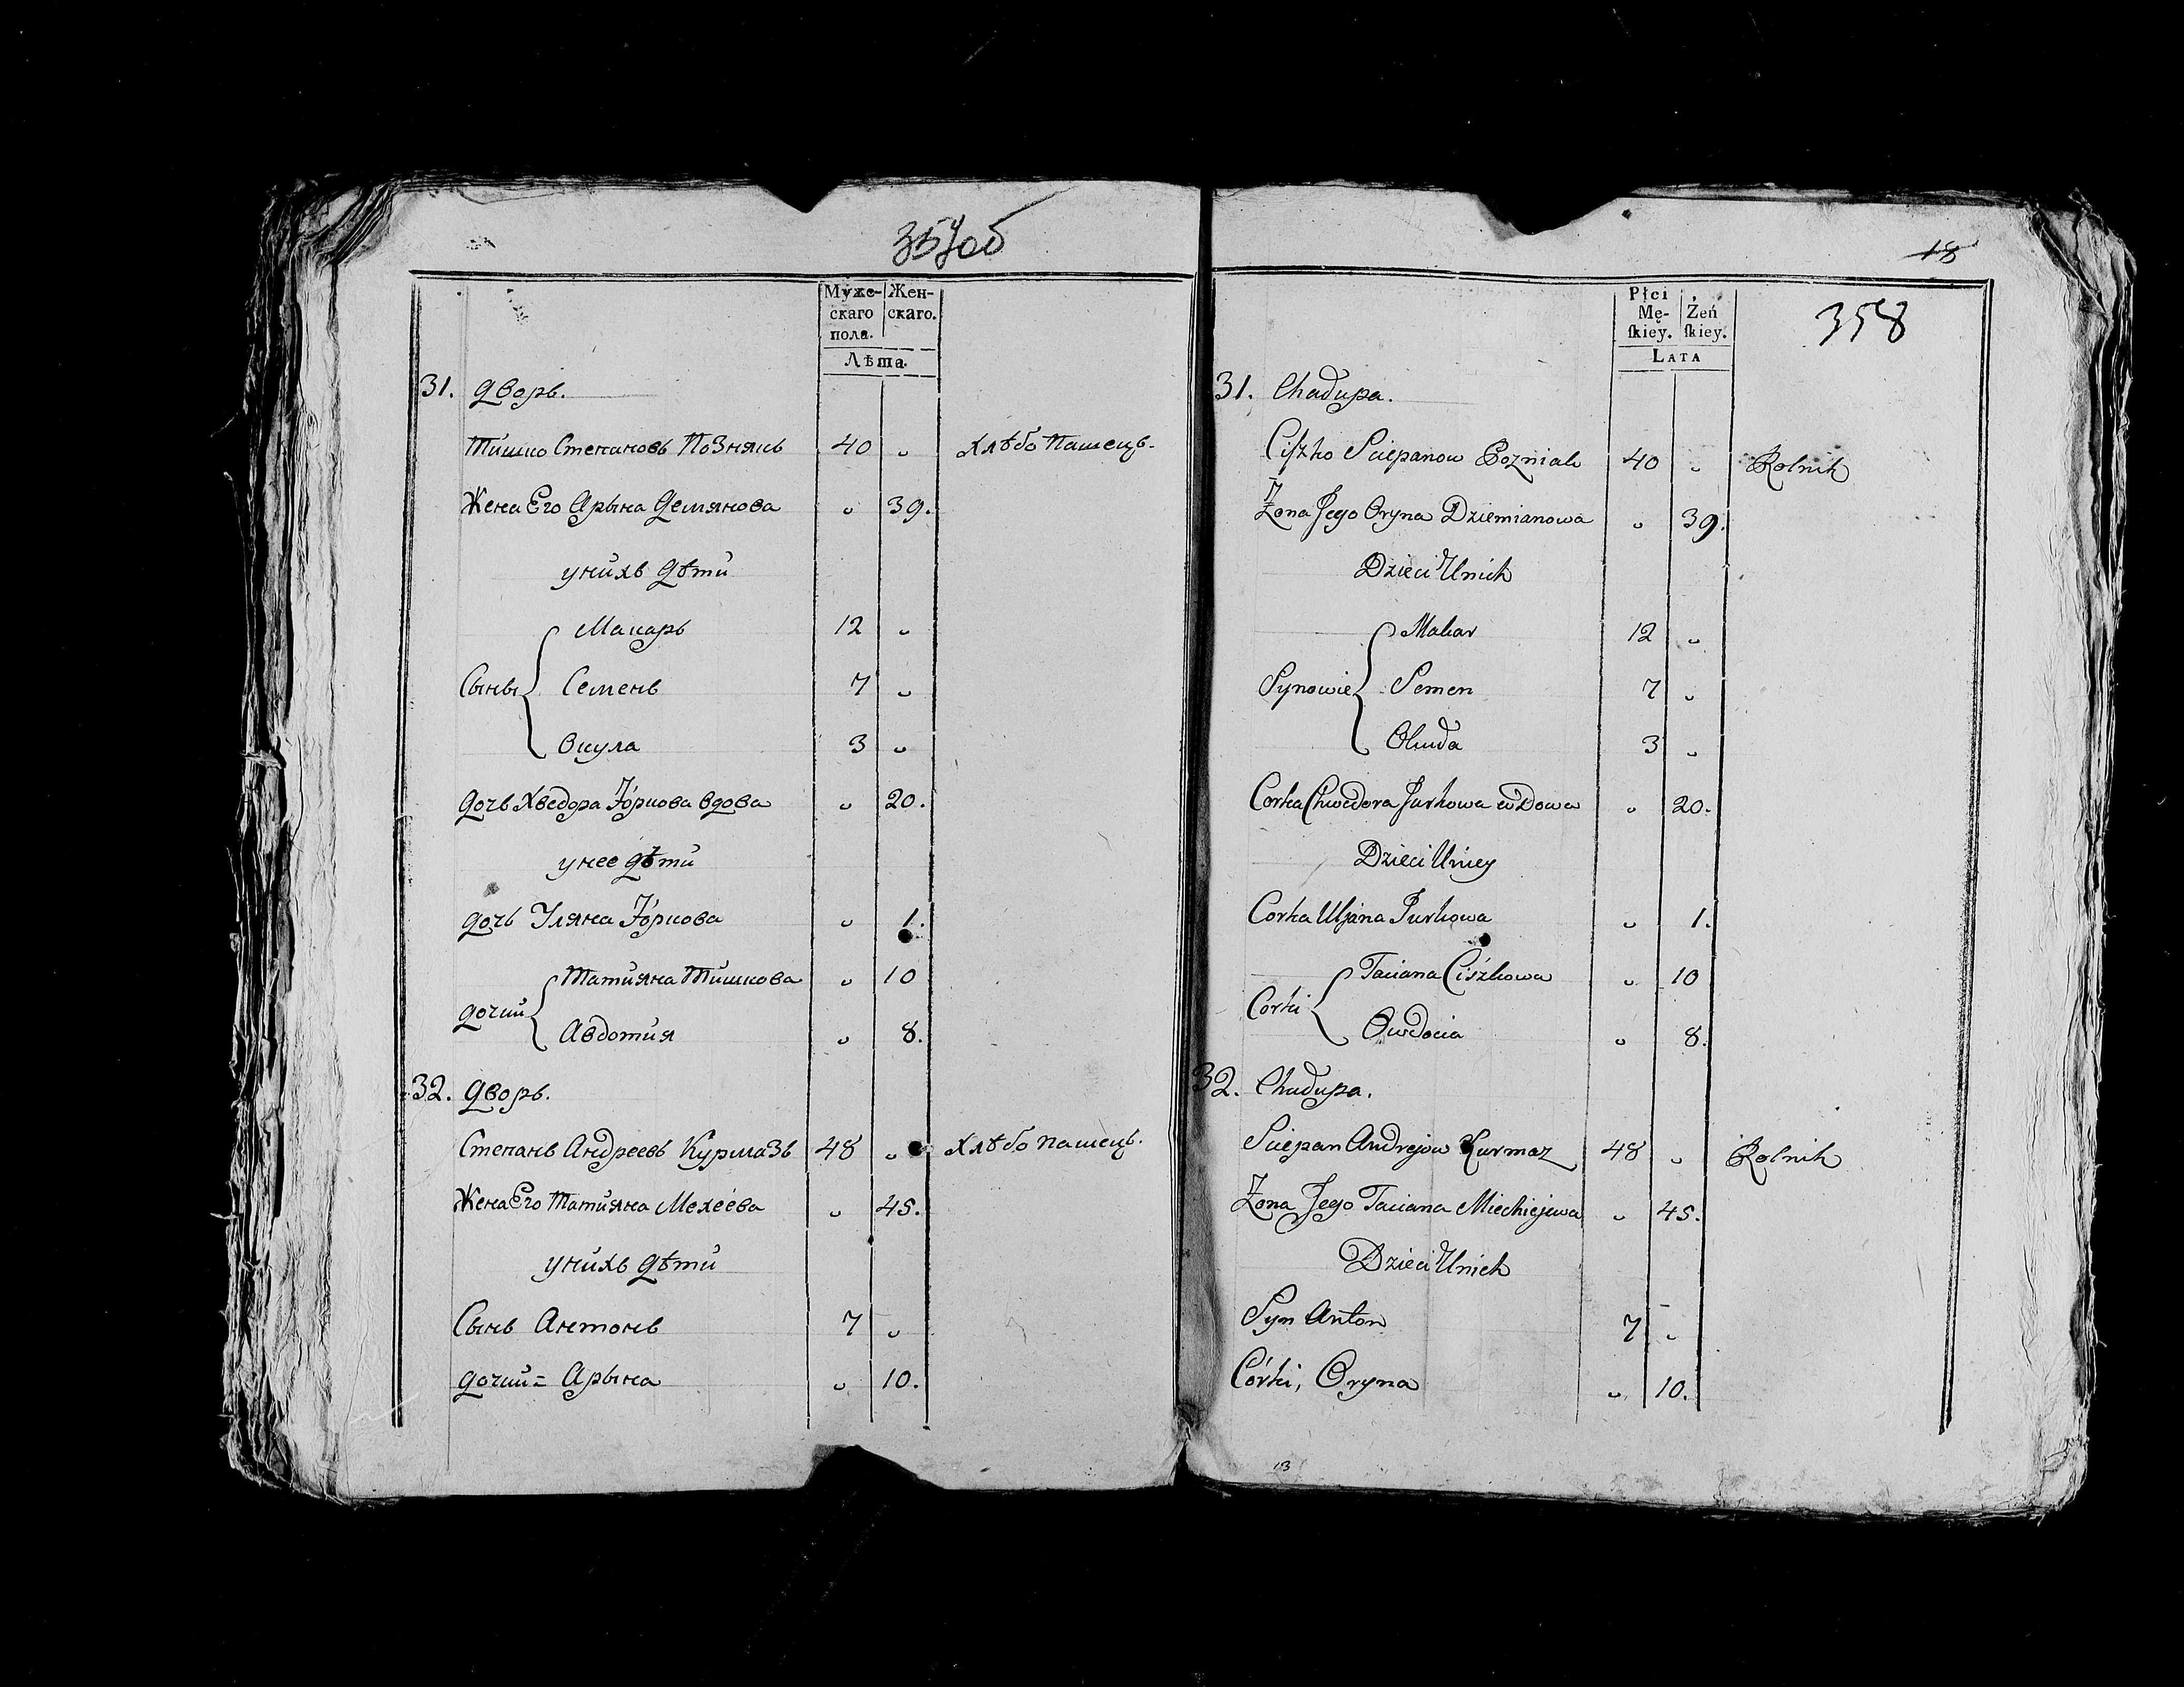 357об
Муже-
скаго
пола.
Жен-
скаго.
Лѣта.
31. дворъ.
Тишко Степановъ Познякъ 40 „ хлѣбо пашецъ.
Жена Его Арына Демянова „ 39.
унихъ дѣти
Макаръ 12 „
Сыны Семенъ 7 „
Окула 3 „
дочь Хведора Юркова вдова „ 20.
унее дѣти
дочь Уляна Юркова „ 1.
Татияна Тишкова „ 10
дочки
Авдотия „ 8.
32. дворъ.
Степанъ Андреевъ Курмазъ 48 „ хлѣбо пашецъ.
Жена Его Татияна Мехеева „ 45.
унихъ дѣти
Сынъ Антонъ 7 „
дочки = Арына „ 10.
18
358
Płci
Mę-
ſkiey.
Żeń
ſkiey.
LATA
31. Chadupa.
Ciszko Sciepanow Pozniak 40 „ Rolnik
Zona Jego Oryna Dziemianowa „ 39.
Dzieci Unich
Makar 12 „
Synowie Semen 7 „
3 „
Corka Chwedora Jurkowa wdowa „ 20.
Dzieci Uniey
Corka Uljana Jurkowa „ 1.
Taciana Ciszkowa „ 10
Corki
Owdocia „ 8.
32. Chadupa.
Sciepan Andrejow Kurmaz 48 „ Rolnik
Zona Jego Taciana Miechiejewa „ 45.
Dzieci Unich
Syn Anton 7 „
Córki, Oryna „ 10.
13